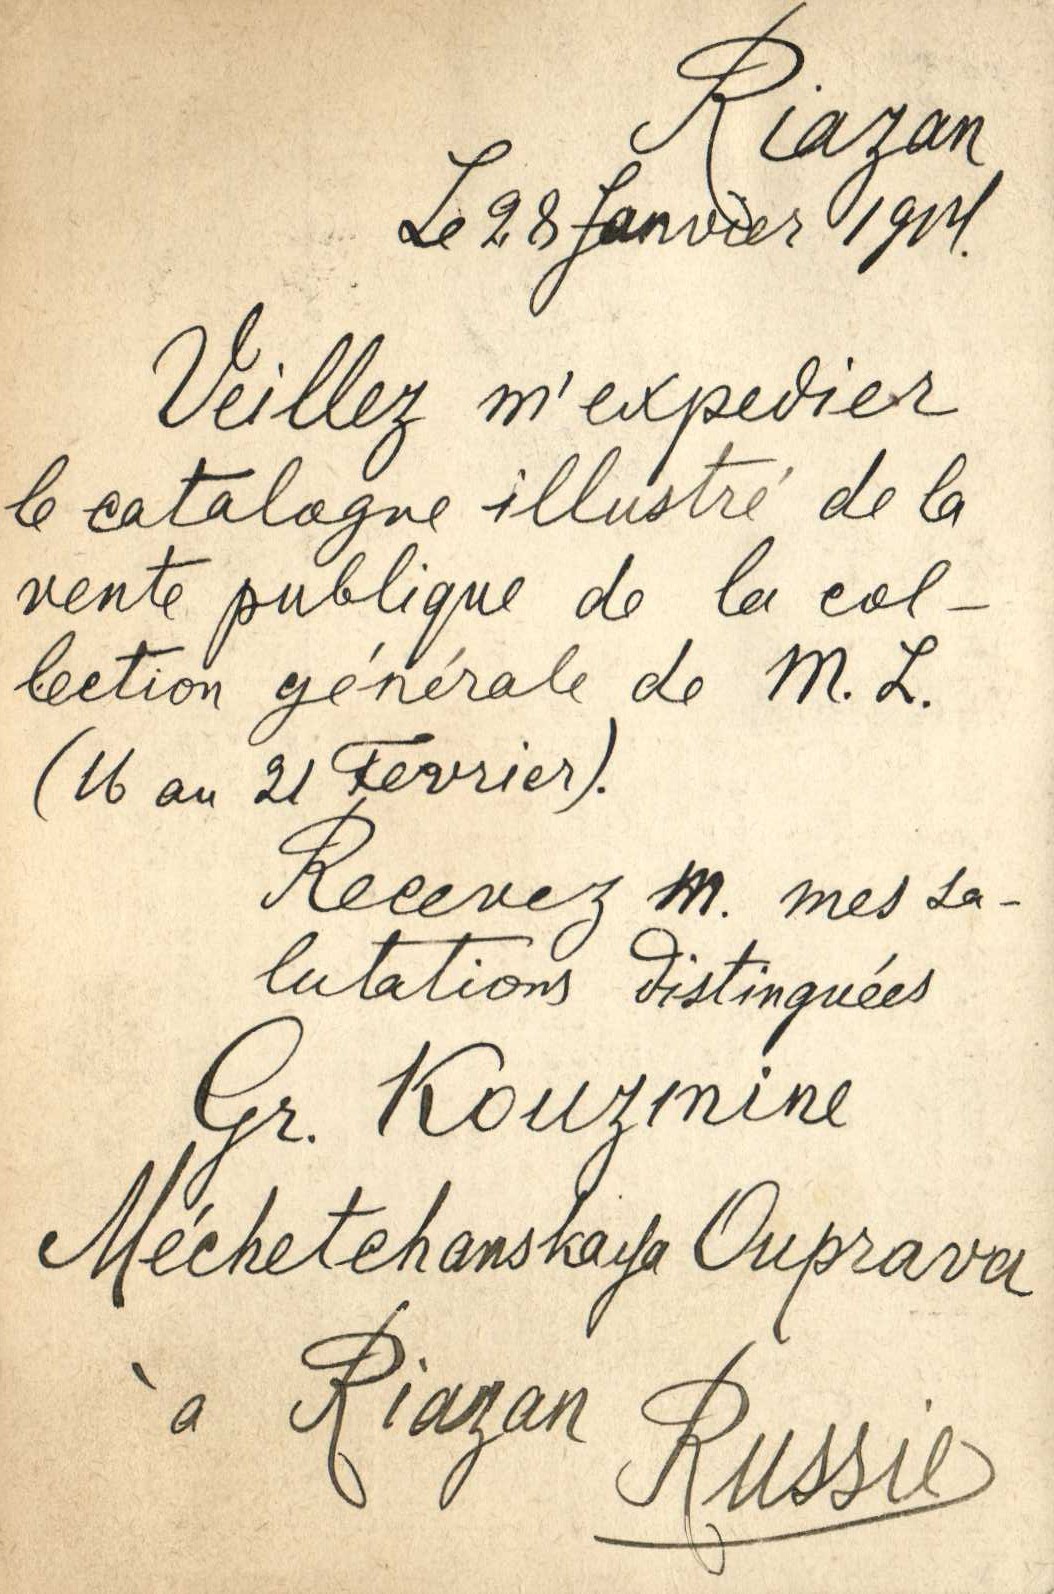 Riazan
Le 28 Janvier 1914.
Veillez m'expedier
le catalogue illustré de la
vente publique de la col-
lection générale de M. L.
(16 au 21 Fevrier).
Recevez M. mes sa-
lutations distinguées
Gr. Kouzmine
Méchetchanskaya Ouprava
à Riazan Russie